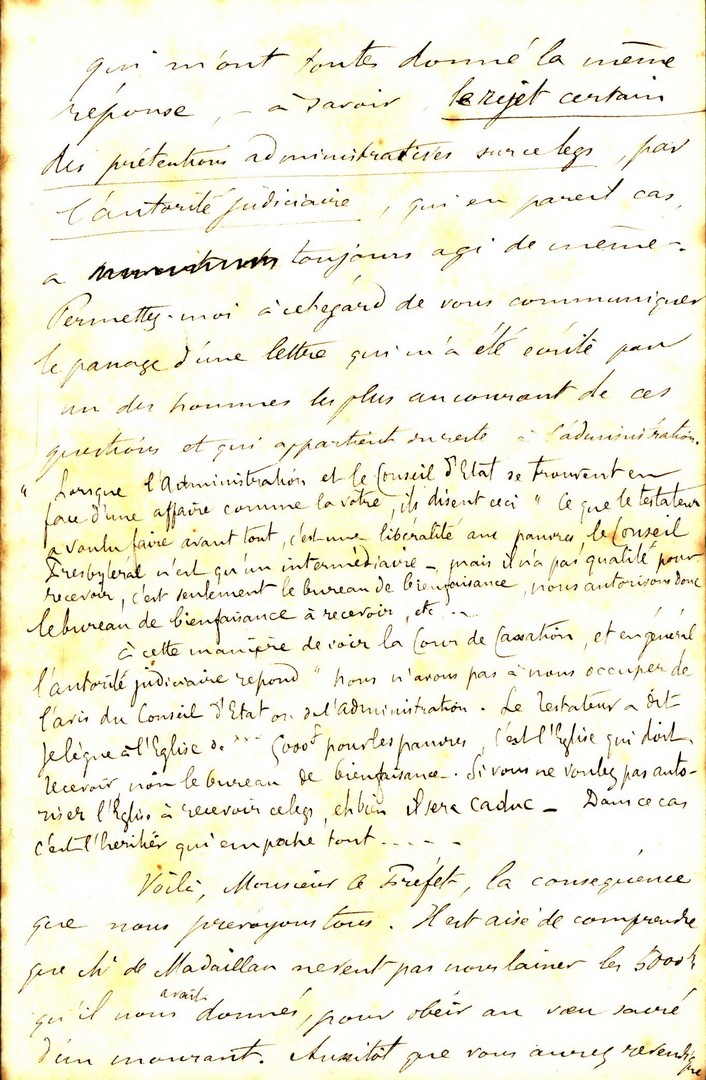 qui m'ont toutes donné la même
réponse, – à savoir le rejet certain
des prétentions administratives sur ce legs, par
l'autorité judiciaire, qui en pareil cas,
a toujours agi de même –.
Permettez-moi à cet égard de vous communiquer
le passage d'une lettre qui m'a été écrite par
un des hommes les plus au courant de ces
questions et qui appartient du reste à l'administration.
" Lorsque l'Administration et le Conseil d'Etat se trouvent en
face d'une affaire comme la votre, ils disent ceci " Ce que le testateur
a voulu faire avant tout, c'est une libéralité aux pauvres, le Conseil
Presbyteral n'est qu'un intermédiaire –, mais il n'a pas qualité pour
recevoir, c'est seulement le bureau de bienfaisance, nous autorisons donc
le bureau de bienfaisance à recevoir, etc...
à cette manière de voir la Cour de Cassation, et en général
l'autorité judiciaire repond " nous n'avons pas à nous occuper de
l'avis du Conseil d'Etat ou de l'Administration. Le Testateur a dit
Je lègue à l'Eglise de *** 5000f pour les pauvres, c'est l'Eglise qui doit
recevoir, non le bureau de bienfaisance –. Si vous ne voulez pas auto-
riser l'Eglise à recevoir ce legs, eh bien il sera caduc – Dans ce cas
c'est l'heritier qui empoche tout - - - - -
Voilà, Monsieur le Préfet, la conséquence
que nous prevoyons tous. Il est aisé de comprendre
que Mr de Madaillan ne veut pas nous laisser les 5000f
qu'il nous avait donnés, pour obéir au vœu sacré
d'un mourant. Aussitôt que vous aurez revendiqué